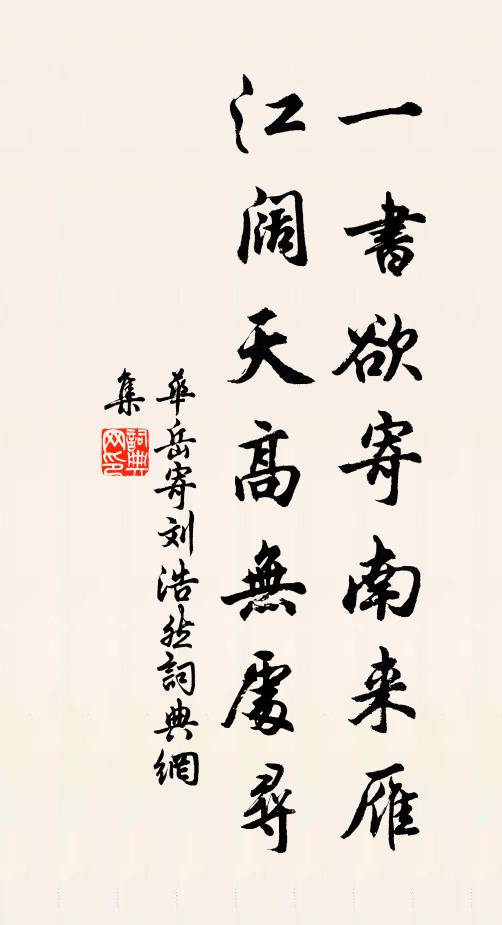 一書欲寄南来雁
江阔天高無處尋
華岳寄刘浩然詞典網
集
詞典网印